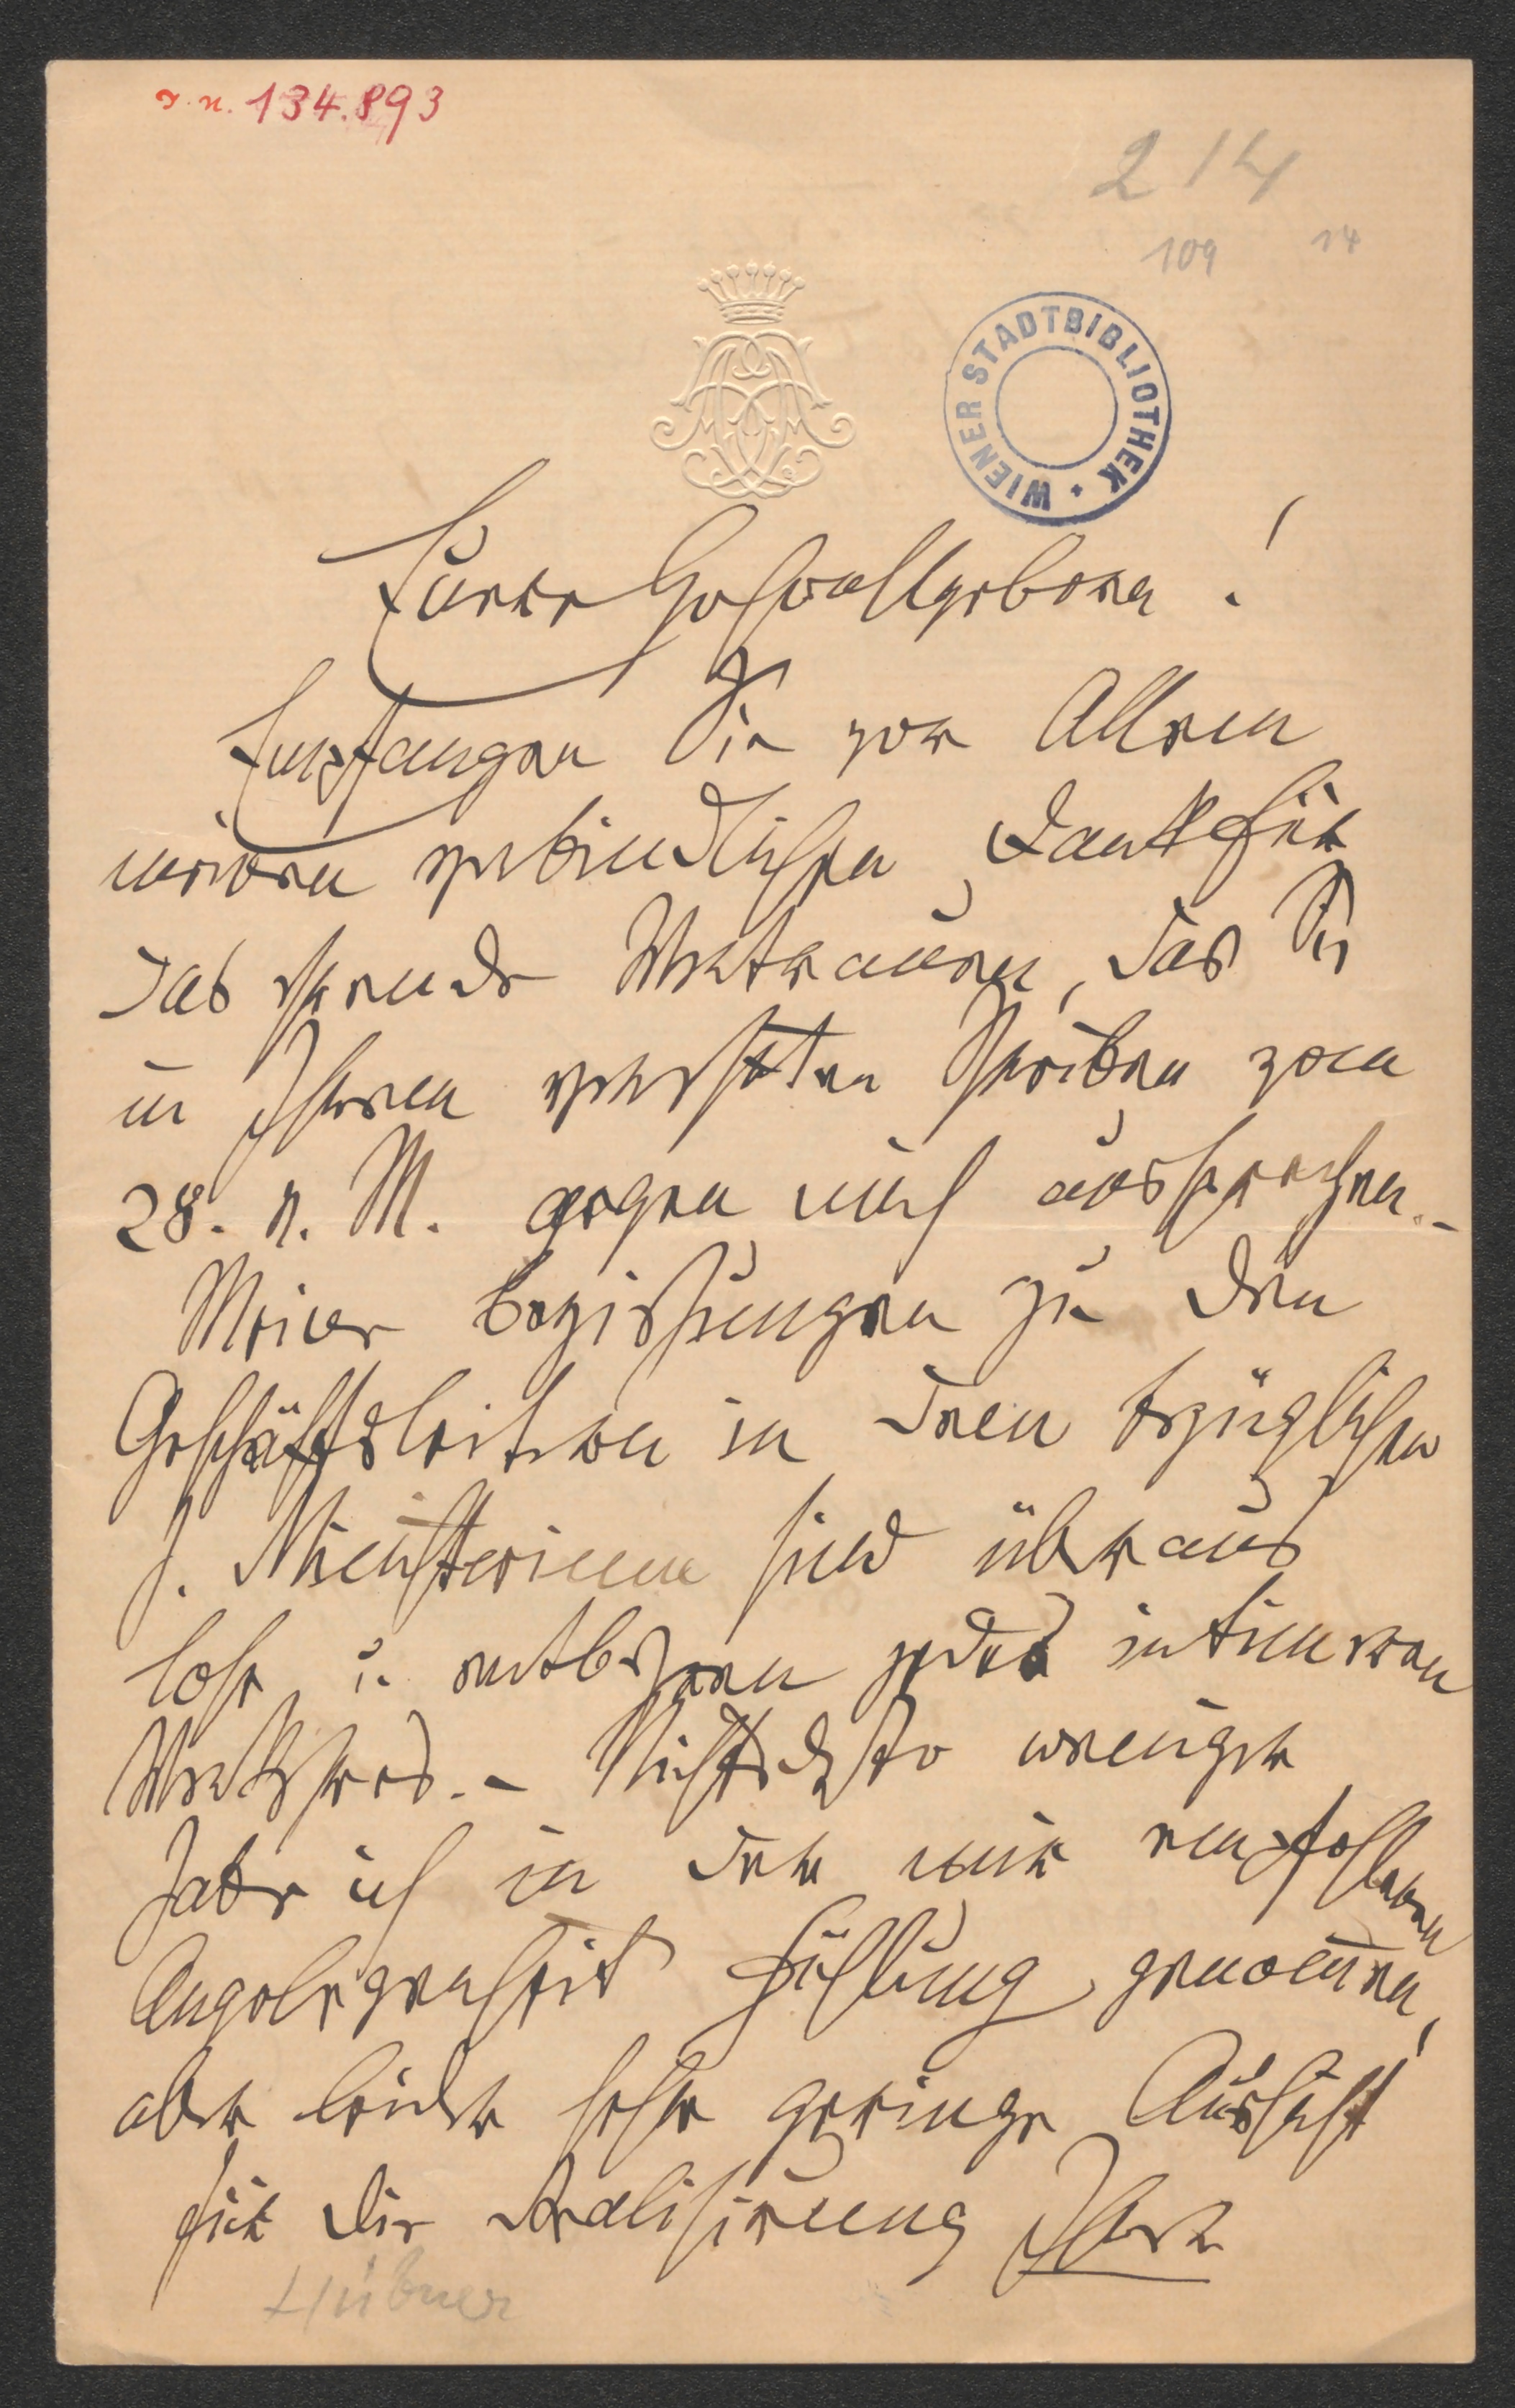 I. N. 134.893
214
109 14
WIENER STADTBIBLIOTHEK
Euere Hochwohlgeboren!
Empfangen Sie vor Allem
meinen verbindlichen Dank für
das ehrende Vertrauen, das Sie
in Ihrem verehrten Schreiben vom
28. v. M. gegen mich aussprechen. –
Meine Beziehungen zu den
Geschäftsleitern in dem bezüglichen
h. Ministerium sind überaus
lose u. entbehren jedes intimeren
Verkehres. – Nichtsdesto weniger
habe ich in der mir empfohlenen
Angelegenheit Fühlung genommen,
aber leider sehr geringe Aussicht
für die Realisirung Ihrer
Hübner